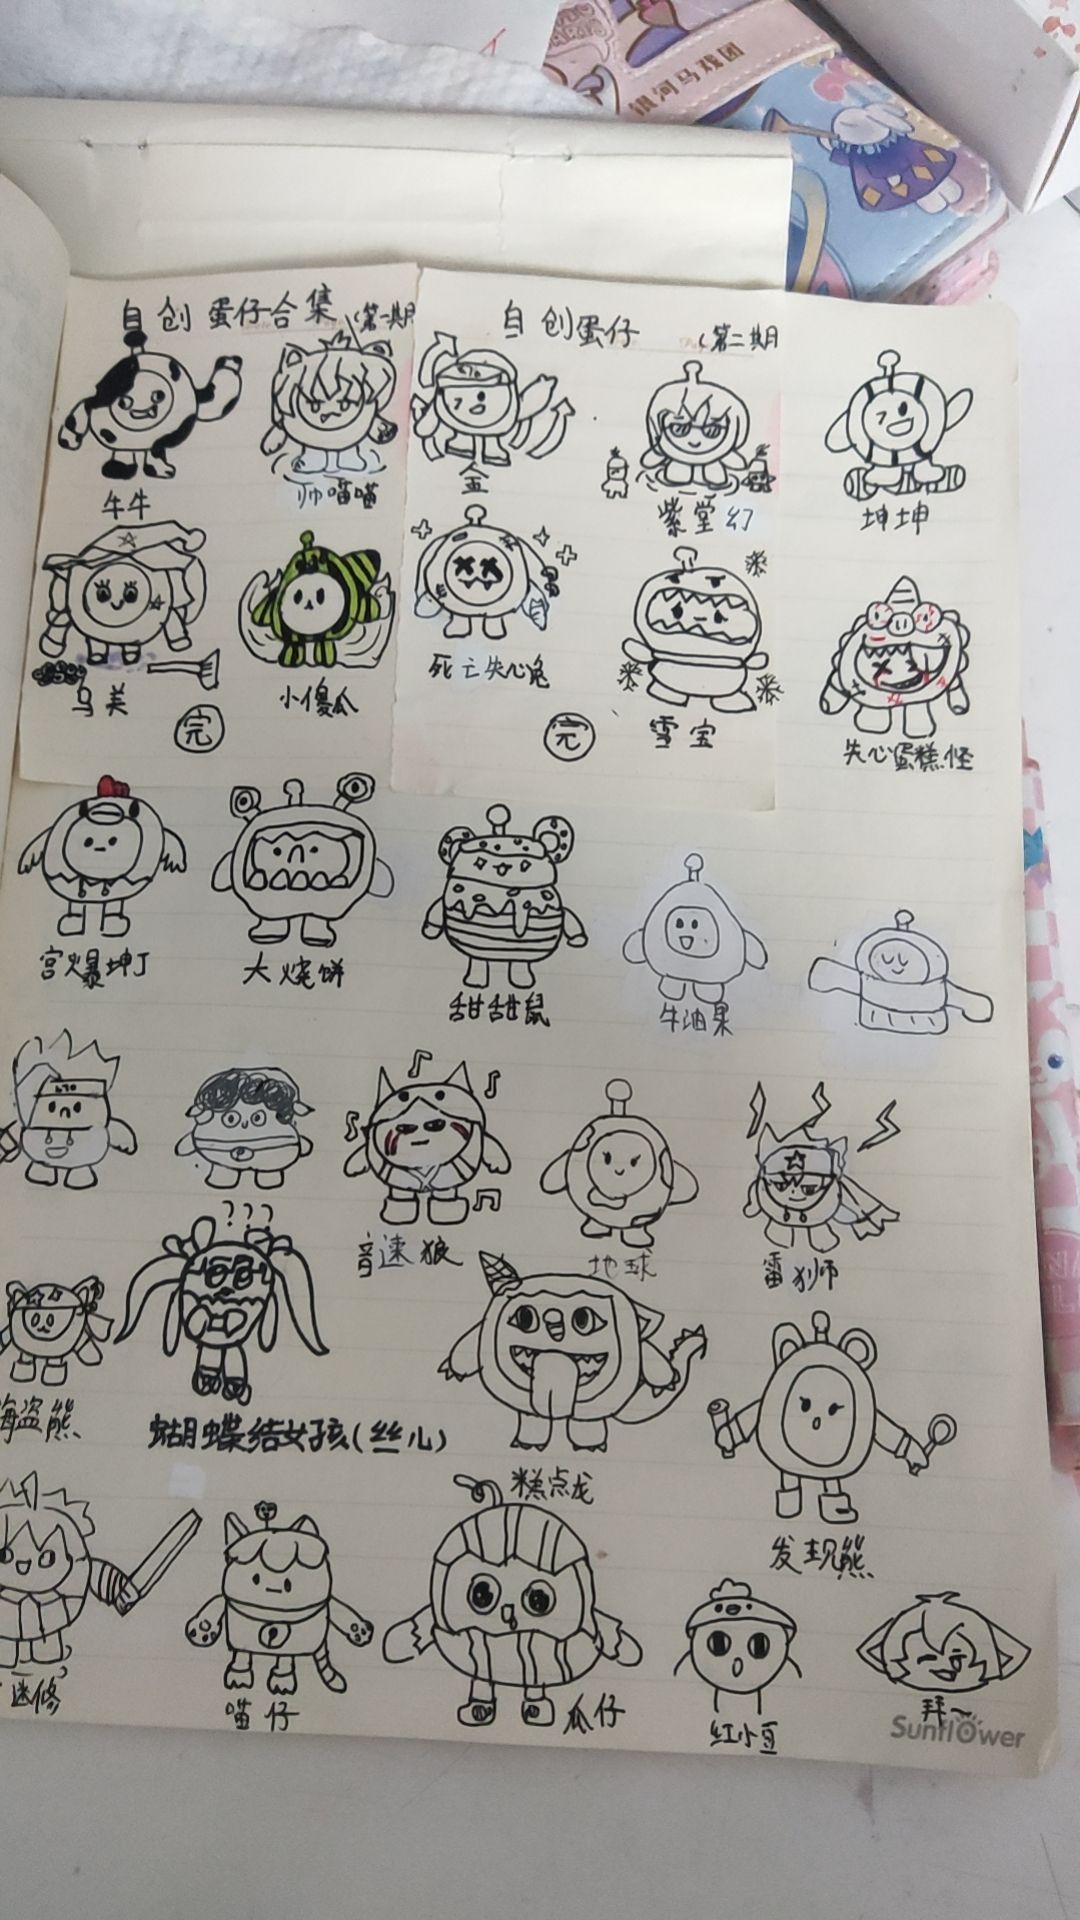 银河马戏团
自创蛋仔合集(第一期
自创蛋仔(第二期
牛牛
帅喵喵
金
紫堂幻
坤坤
乌美
小傻瓜
死亡失心兔
雪宝
失心蛋糕怪
完
完
宫爆坤丁
大烧饼
甜甜鼠
牛油果
???
音速狼
地球
雷狮
海盗熊
蝴蝶结女孩(丝儿)
糕点龙
发现熊
迷修
喵仔
瓜仔
红小豆
拜~
Sunflower